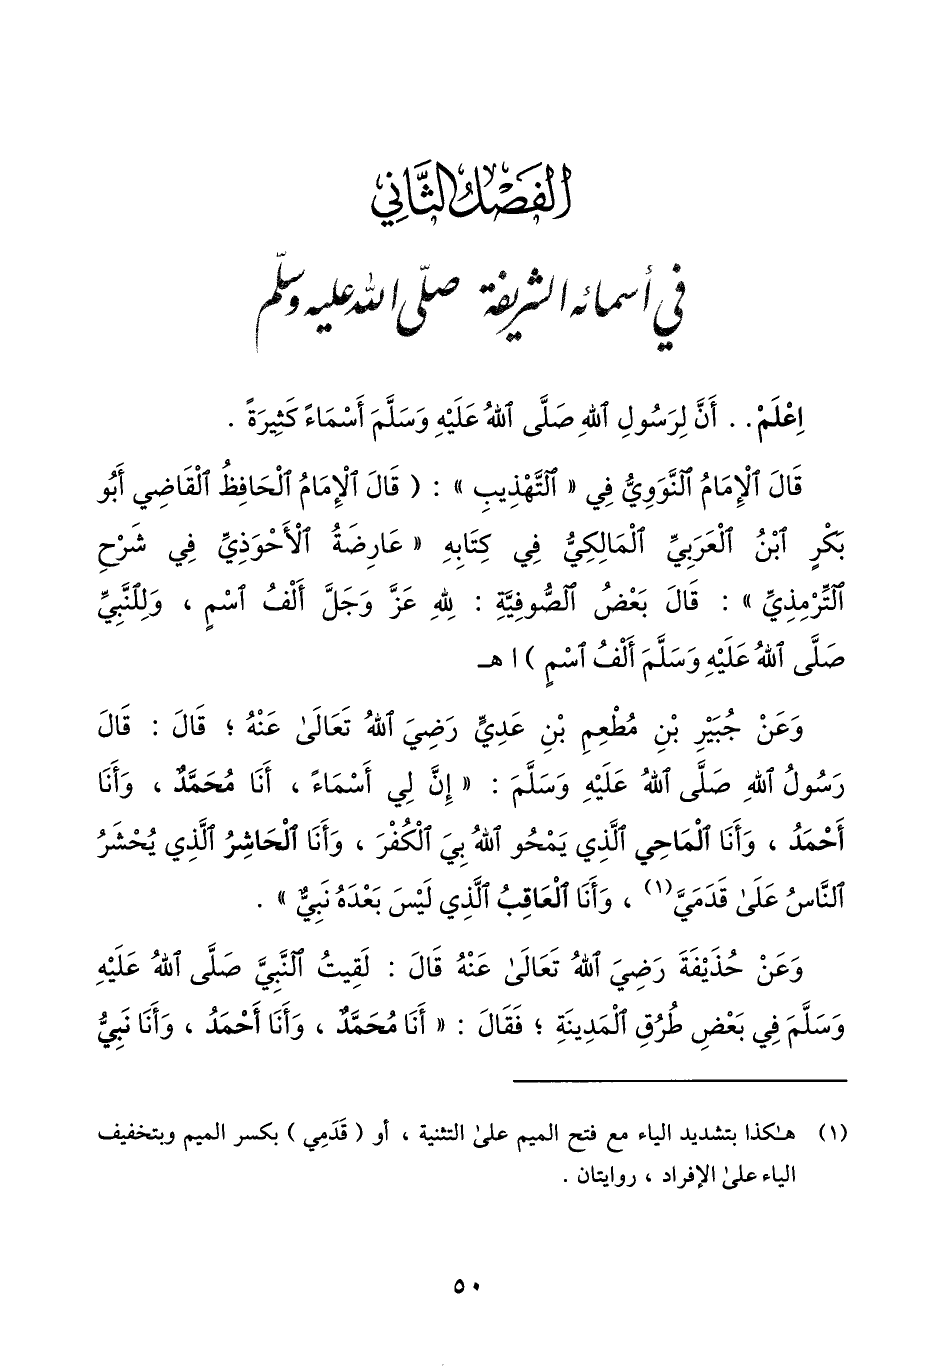 الفَصْلُ الثَّانِي
في أسمائه الشريفة صلّى الله عليه وسلّم
اِعْلَمْ.. أَنَّ لِرَسُولِ ٱللهِ صَلَّى ٱللهُ عَلَيْهِ وَسَلَّمَ أَسْمَاءً كَثِيرَةً .
قَالَ ٱلْإِمَامُ ٱلنَّوَوِيُّ فِي « ٱلتَّهْذِيبِ » : ( قَالَ ٱلْإِمَامُ ٱلْحَافِظُ ٱلْقَاضِي أَبُو
بَكْرٍ ٱبْنُ ٱلْعَرَبِيِّ ٱلْمَالِكِيُّ فِي كِتَابِهِ « عَارِضَةُ ٱلْأَحْوَذِيِّ فِي شَرْحِ
ٱلتِّرْمِذِيِّ » : قَالَ بَعْضُ ٱلصُّوفِيَّةِ : لِلهِ عَزَّ وَجَلَّ أَلْفُ ٱسْمٍ ، وَلِلنَّبِيِّ
صَلَّى ٱللهُ عَلَيْهِ وَسَلَّمَ أَلْفُ ٱسْمٍ ) اهـ
وَعَنْ جُبَيْرِ بْنِ مُطْعِمِ بْنِ عَدِيٍّ رَضِيَ ٱللهُ تَعَالَىٰ عَنْهُ ؛ قَالَ : قَالَ
رَسُولُ ٱللهِ صَلَّى ٱللهُ عَلَيْهِ وَسَلَّمَ : « إِنَّ لِي أَسْمَاءً ، أَنَا مُحَمَّدٌ ، وَأَنَا
أَحْمَدُ ، وَأَنَا ٱلْمَاحِي ٱلَّذِي يَمْحُو ٱللهُ بِيَ ٱلْكُفْرَ ، وَأَنَا ٱلْحَاشِرُ ٱلَّذِي يُحْشَرُ
ٱلنَّاسُ عَلَىٰ قَدَمَيَّ(١) ، وَأَنَا ٱلْعَاقِبُ ٱلَّذِي لَيْسَ بَعْدَهُ نَبِيٌّ » .
وَعَنْ حُذَيْفَةَ رَضِيَ ٱللهُ تَعَالَىٰ عَنْهُ قَالَ : لَقِيتُ ٱلنَّبِيَّ صَلَّى ٱللهُ عَلَيْهِ
وَسَلَّمَ فِي بَعْضِ طُرُقِ ٱلْمَدِينَةِ ؛ فَقَالَ : « أَنَا مُحَمَّدٌ ، وَأَنَا أَحْمَدُ ، وَأَنَا نَبِيُّ
(١) هـٰكذا بتشديد الياء مع فتح الميم علىٰ التثنية ، أو ( قَدَمِي ) بكسر الميم وبتخفيف
الياء علىٰ الإفراد ، روايتان .
٥٠